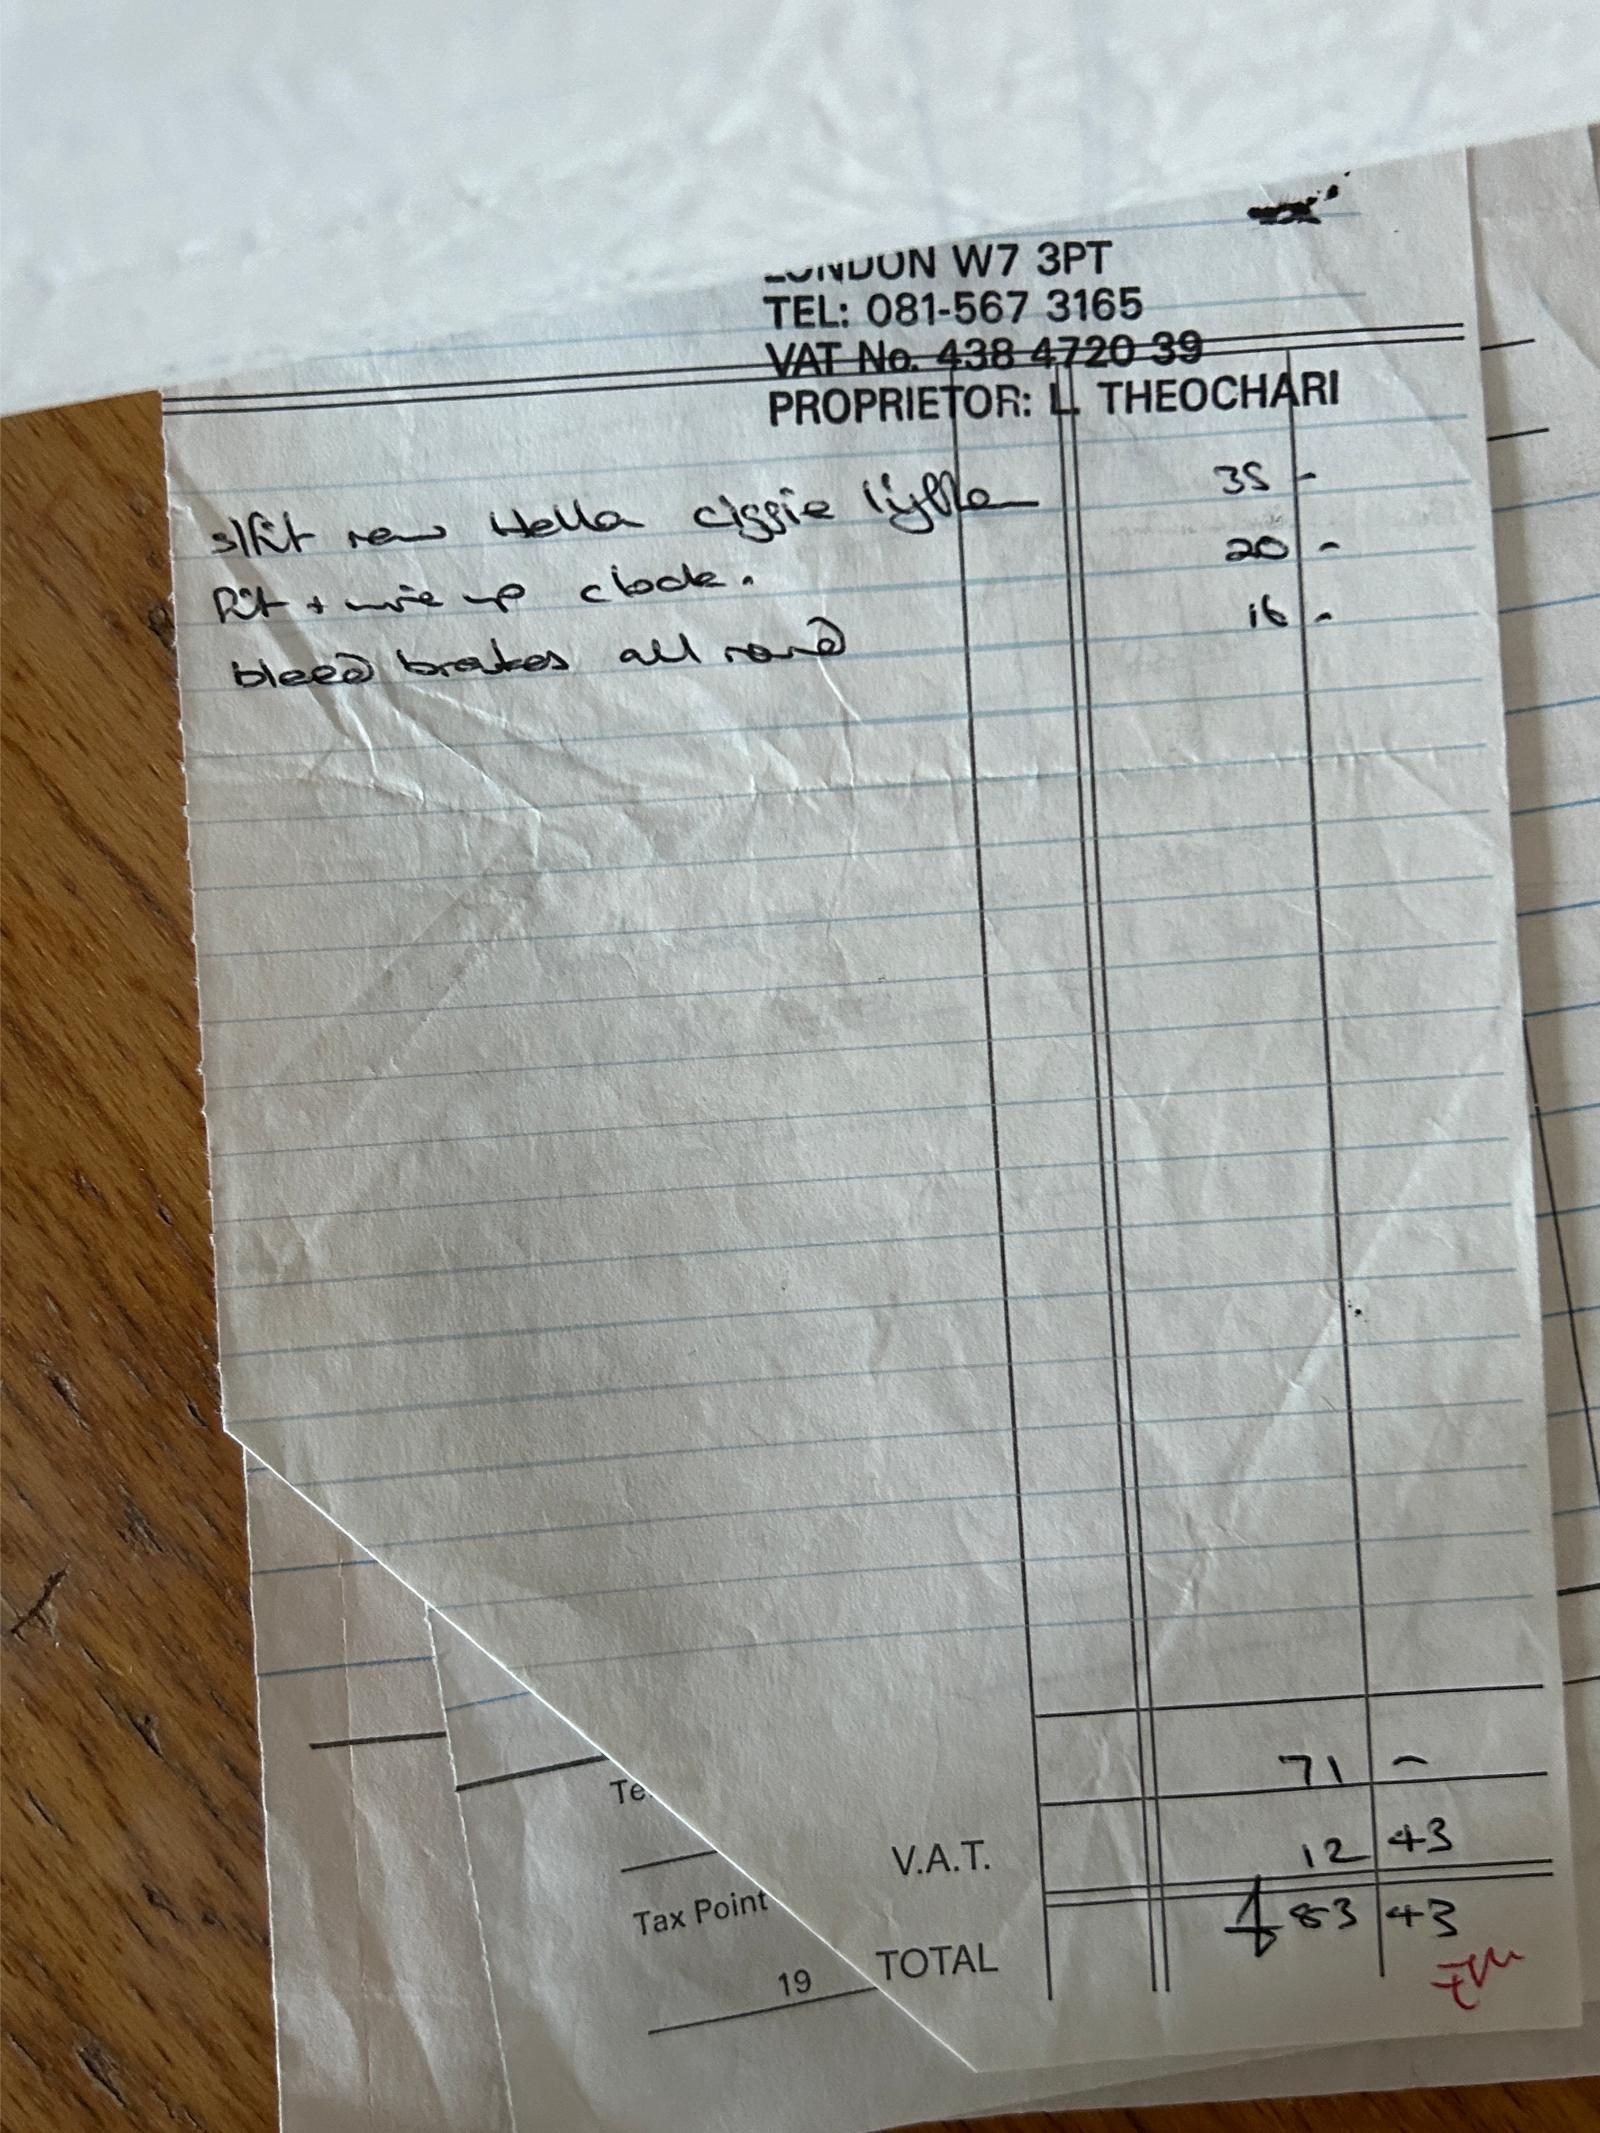 LONDON W7 3PT
TEL: 081-567 3165
VAT No. 438 4720 39
PROPRIETOR: L. THEOCHARI
s/fit new Hella ciggie lighter 35 -
fit + wire up clock. 20 -
bleed brakes all round 16 -
71 -
V.A.T. 12 43
TOTAL £83 43
Te
Tax Point
19